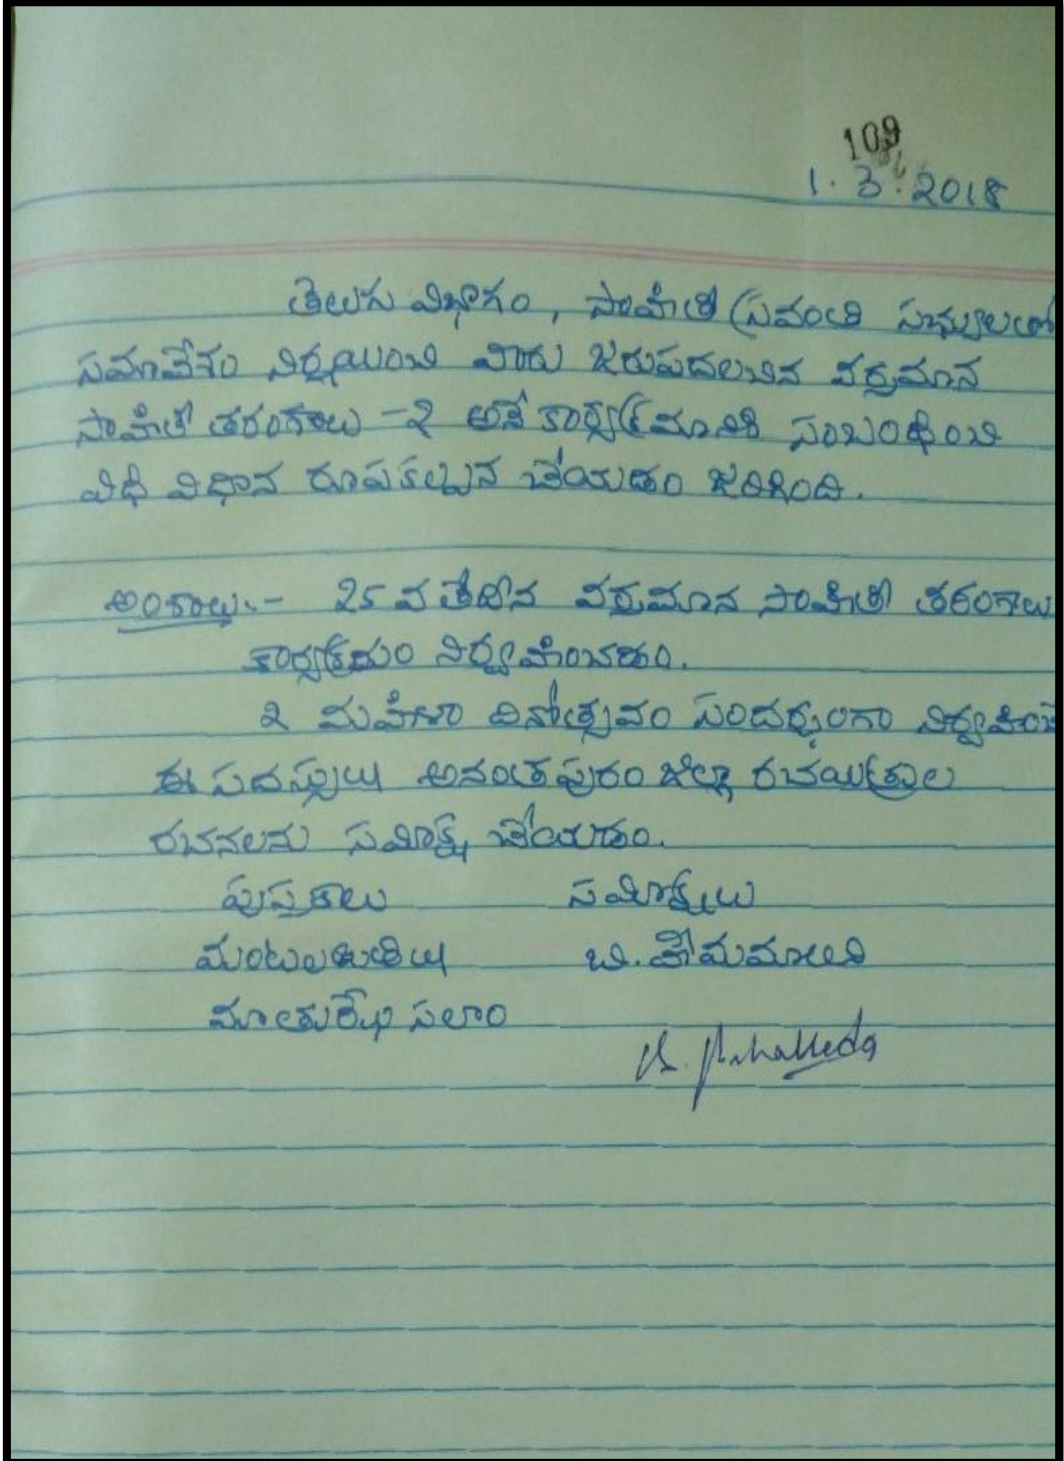 109
1.3.2018
తెలుగు విభాగం, సాహితీ స్రవంతి సభ్యులతో
సమావేశం నిర్ణయించి వారు జరుపదలచిన వర్తమాన
సాహితీ తరంగాలు -2 అనే కార్యక్రమానికి సంబంధించి
విధి విధాన రూపకల్పన చేయడం జరిగింది.
అంశాలు:- 25 వ తేదిన వర్తమాన సాహితీ తరంగాలు
కార్యక్రమం నిర్వహించడం.
2 మహిళా దినోత్సవం సందర్భంగా నిర్వహించే
ఈ సదస్సులు అనంతపురం జిల్లా రచయిత్రుల
రచనలను సమీక్ష చేయడం.
పుస్తకాలు సమీక్షలు
బి. హేమమాలిని
మాతుఝే సలాం